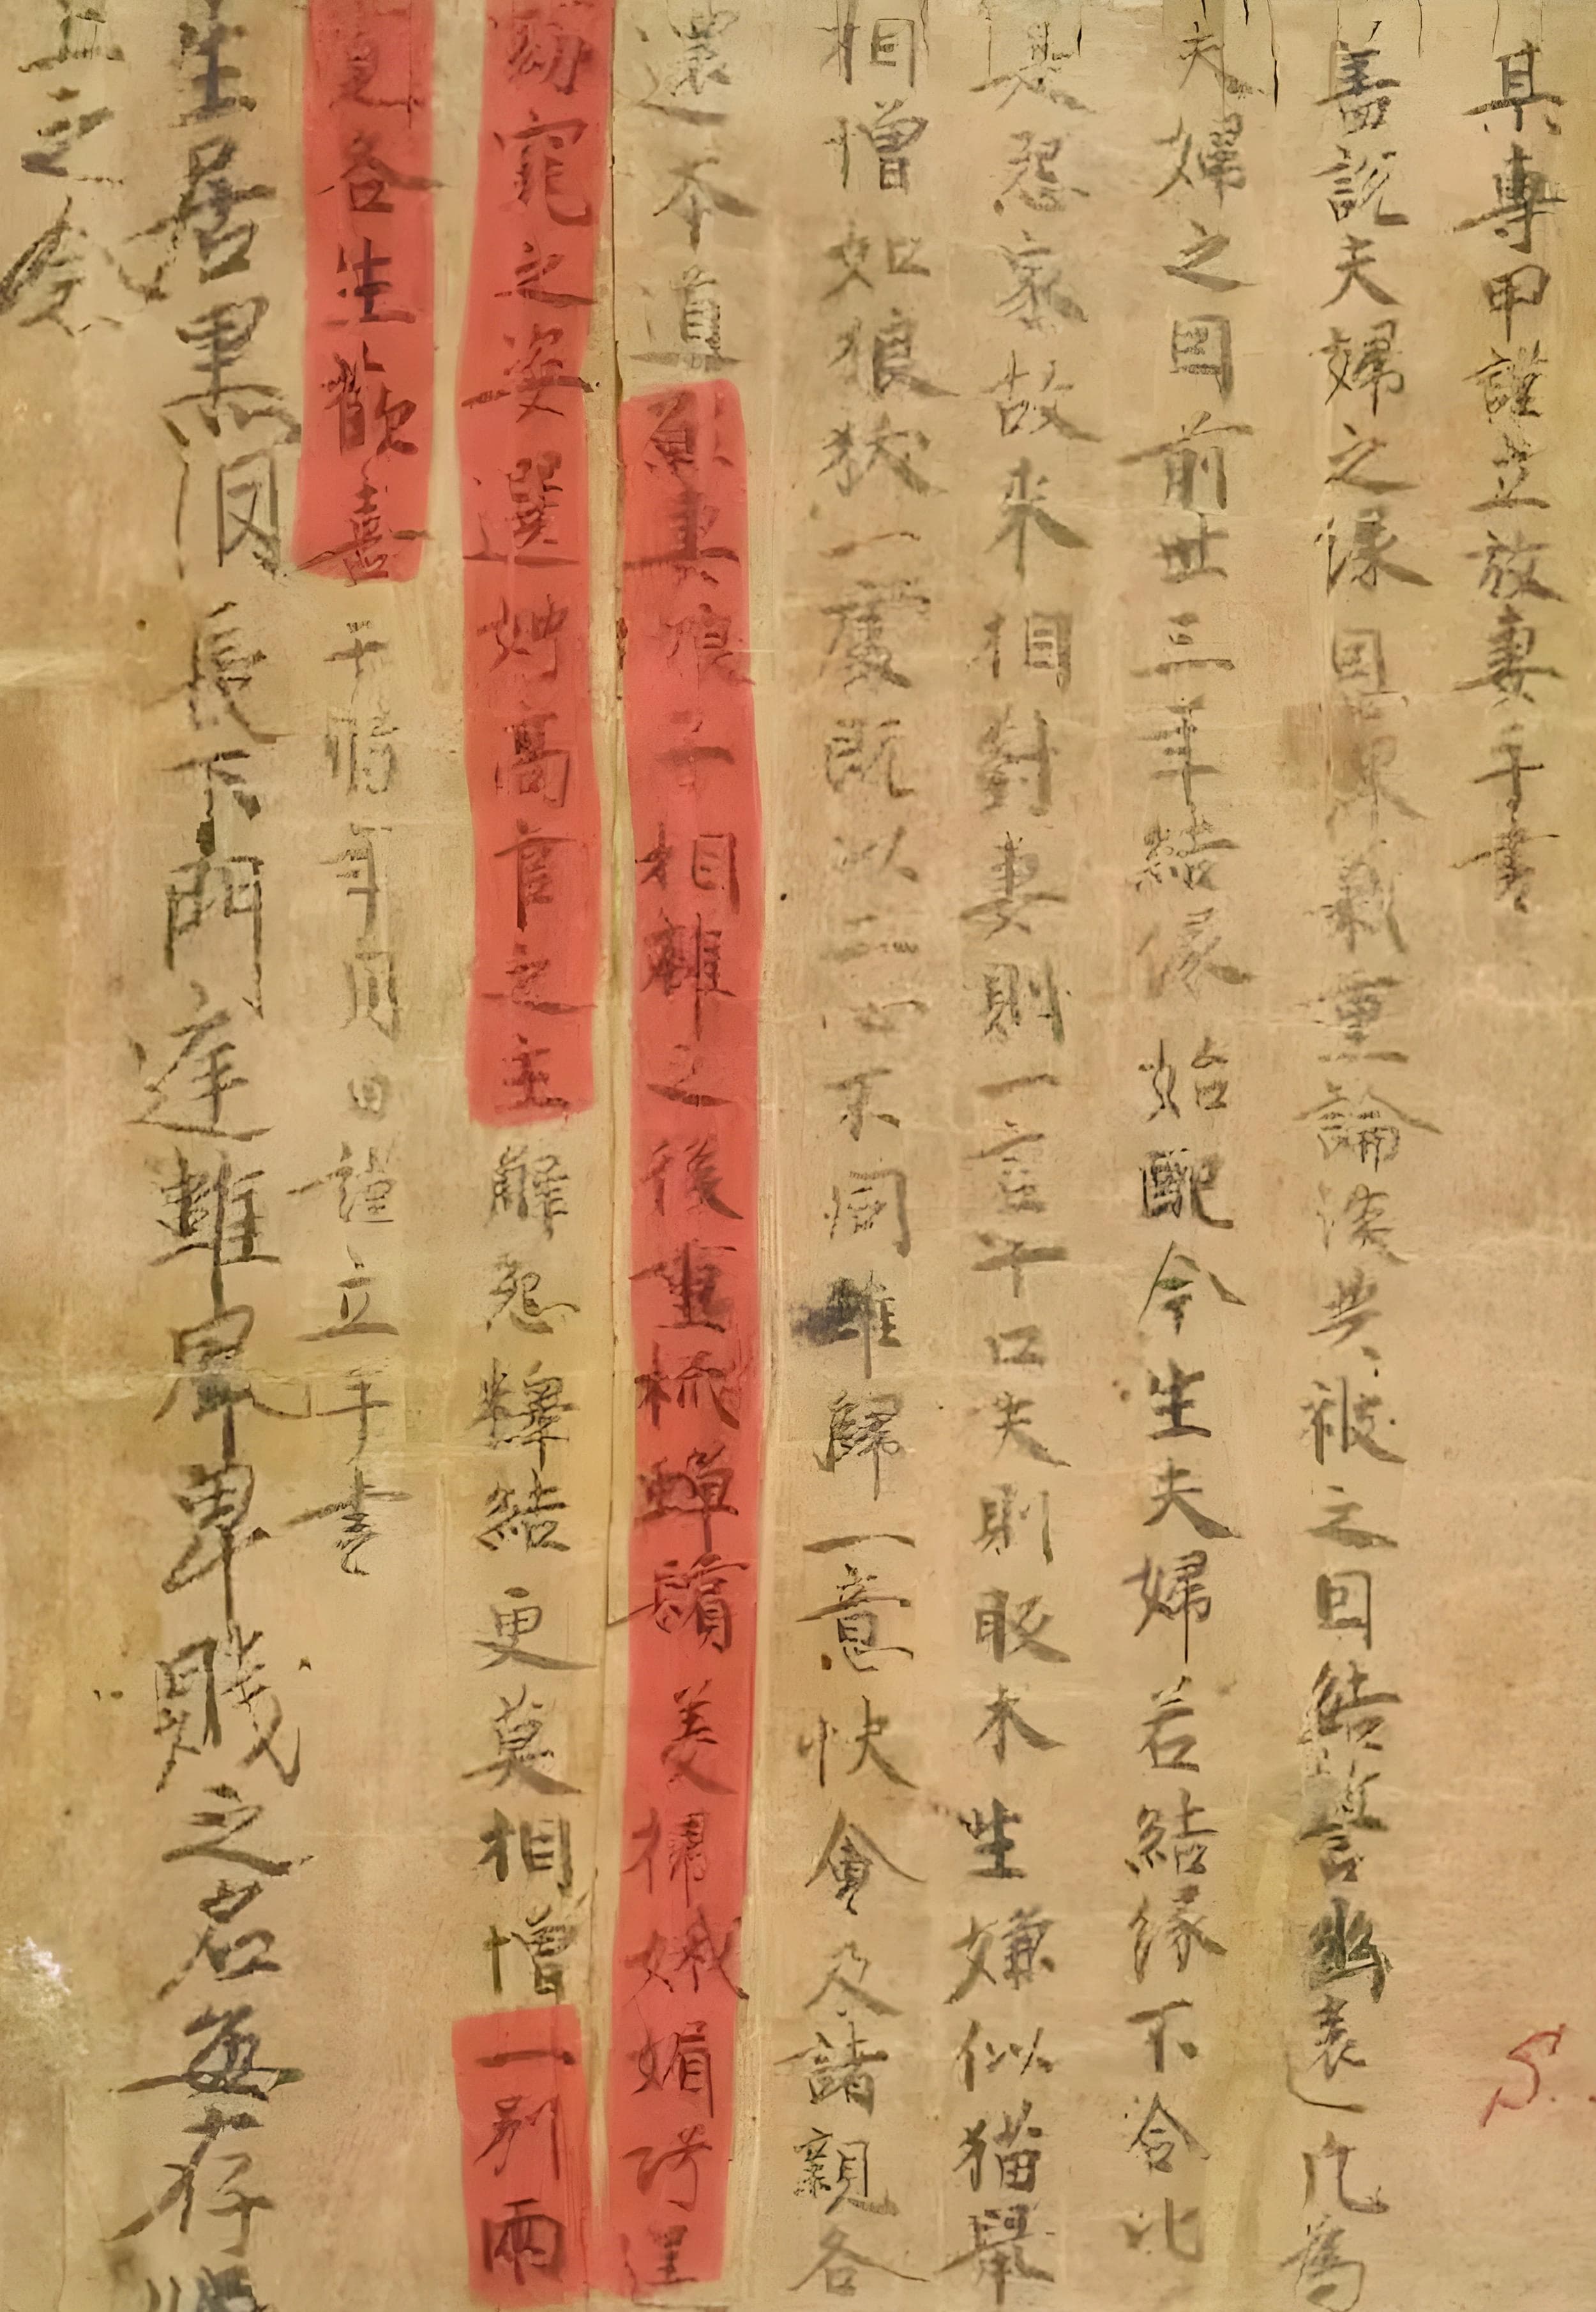 某專甲謹立放妻手書
蓋説夫婦之緣恩深義重論談共被之因結誓幽遠凡為
夫婦之因前世三年結緣始配今生夫婦若結緣不合比
是怨家故來相對妻則一言十口夫則眅木生嫌似猫鼠
相憎如狼狄一處既以二心不同難歸一意快會及諸親各
還本道願妻娘子相離之後重梳蟬鬢美掃娥媚巧逞
窈窕之姿選娉高官之主解怨釋結更莫相憎一別兩
寬各生歡喜于時年月日謹立手書
生居黑長下門庭雖卑卑賤之名每存
之念
S.